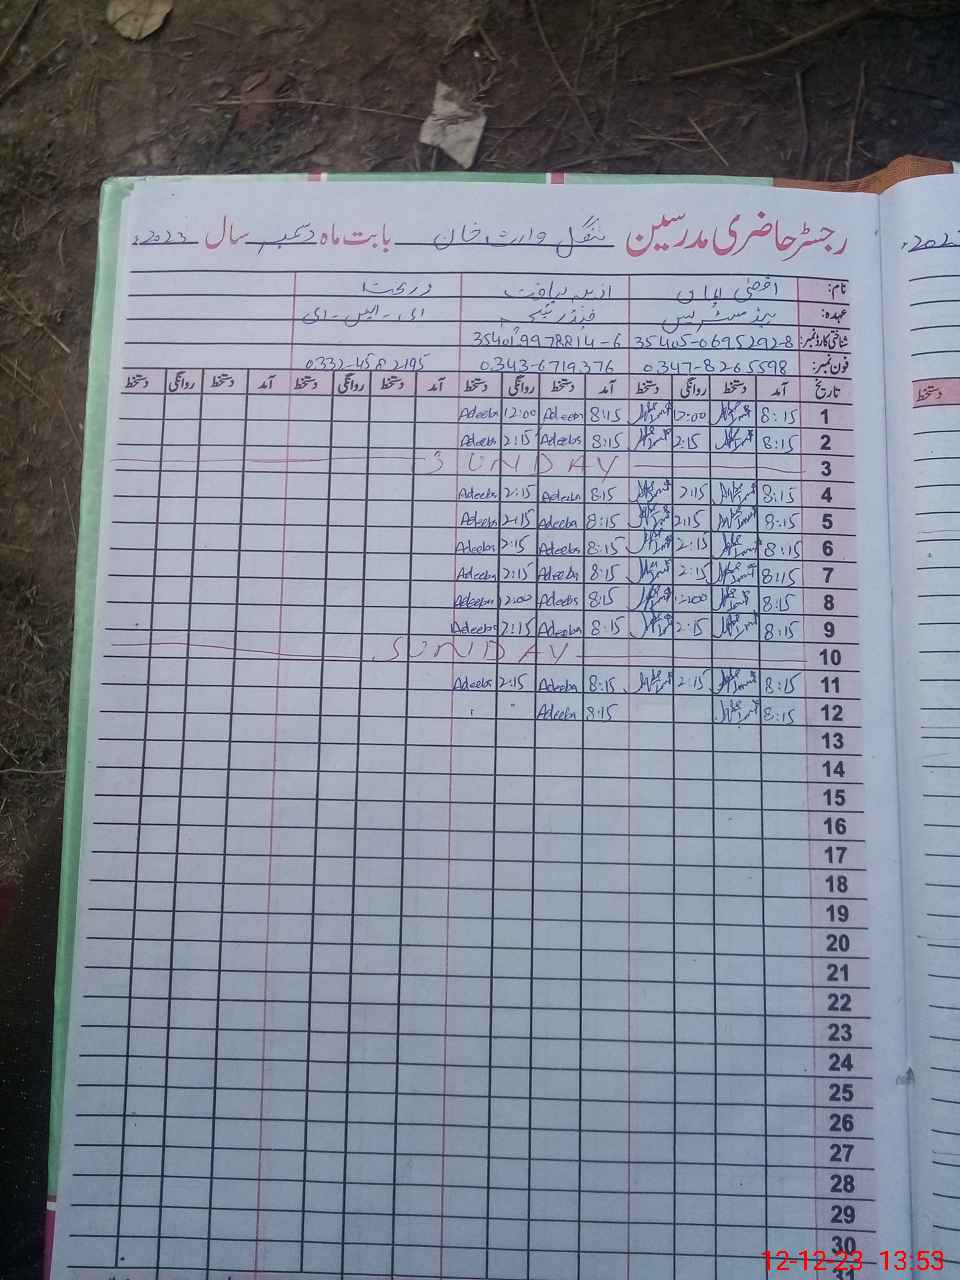 رجسٹر حاضری مدرسین ننگل وارث خان بابت ماہ دسمبر سال 2023ء
نام: اقصیٰ ادیبہ لیاقت
عہدہ: ہیڈ مسٹریس ای۔ایس۔ای
شناختی کارڈ نمبر: 35405-0695292-8 6
فون نمبر: 0347-8265598 0343-6719376
تاریخ آمد دستخط روانگی دستخط آمد دستخط روانگی دستخط آمد دستخط روانگی دستخط آمد دستخط روانگی دستخط
1 8:15 12:00 8:15 Adeeba 12:00 Adeeba
2 8:15 2:15 8:15 Adeeba 2:15 Adeeba
3 SUNDAY
4 8:15 2:15 8:15 Adeeba 2:15 Adeeba
5 8:15 2:15 8:15 Adeeba 2:15 Adeeba
6 8:15 2:15 8:15 Adeeba 2:15 Adeeba
7 8:15 2:15 8:15 Adeeba 2:15 Adeeba
8 8:15 12:00 8:15 Adeeba 12:00 Adeeba
9 8:15 2:15 8:15 Adeeba 2:15 Adeeba
10 SUNDAY
11 8:15 2:15 8:15 Adeeba 2:15 Adeeba
12 8:15 8:15 Adeeba
13
14
15
16
17
18
19
20
21
22
23
24
25
26
27
28
29
30
31
دستخط
12-12-23 13:53